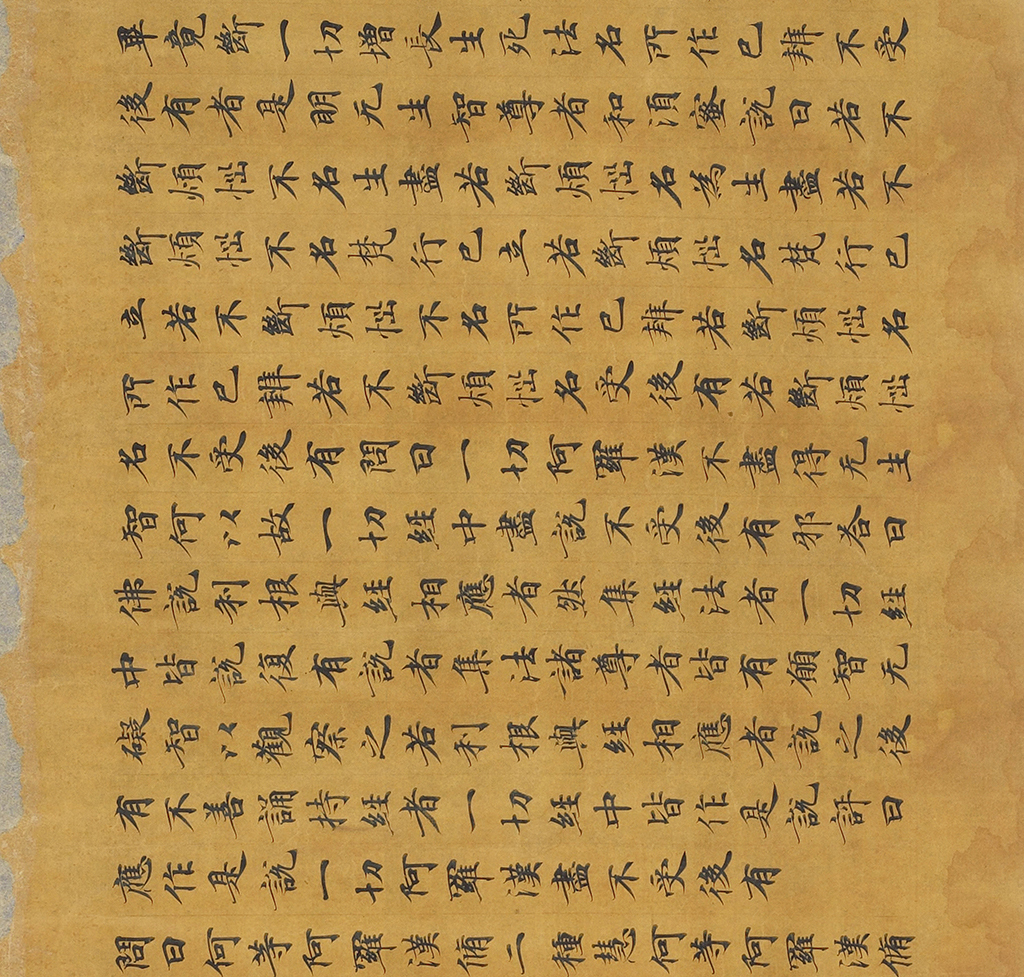 畢竟斷一切增長生死法名所作已辨不受
後有者是明无生智尊者和須蜜說曰若不
斷煩惱不名生盡若斷煩惱名為生盡若不
斷煩惱不名梵行已立若斷煩惱名梵行已
立若不斷煩惱不名所作已辨若斷煩惱名
所作已辨若不斷煩惱名受後有若斷煩惱
名不受後有問曰一切阿羅漢不盡得无生
智何以故一切經中盡說不受後有邪答曰
佛說利根與經相應者然集經法者一切經
中皆說復有說者集法諸尊者皆有願智无
礙智以觀察之若利根與經相應者說之後
有不善誦持經者一切經中皆作是說評曰
應作是說一切阿羅漢盡不受後有
問曰何等阿羅漢脩二種慧何等阿羅漢脩